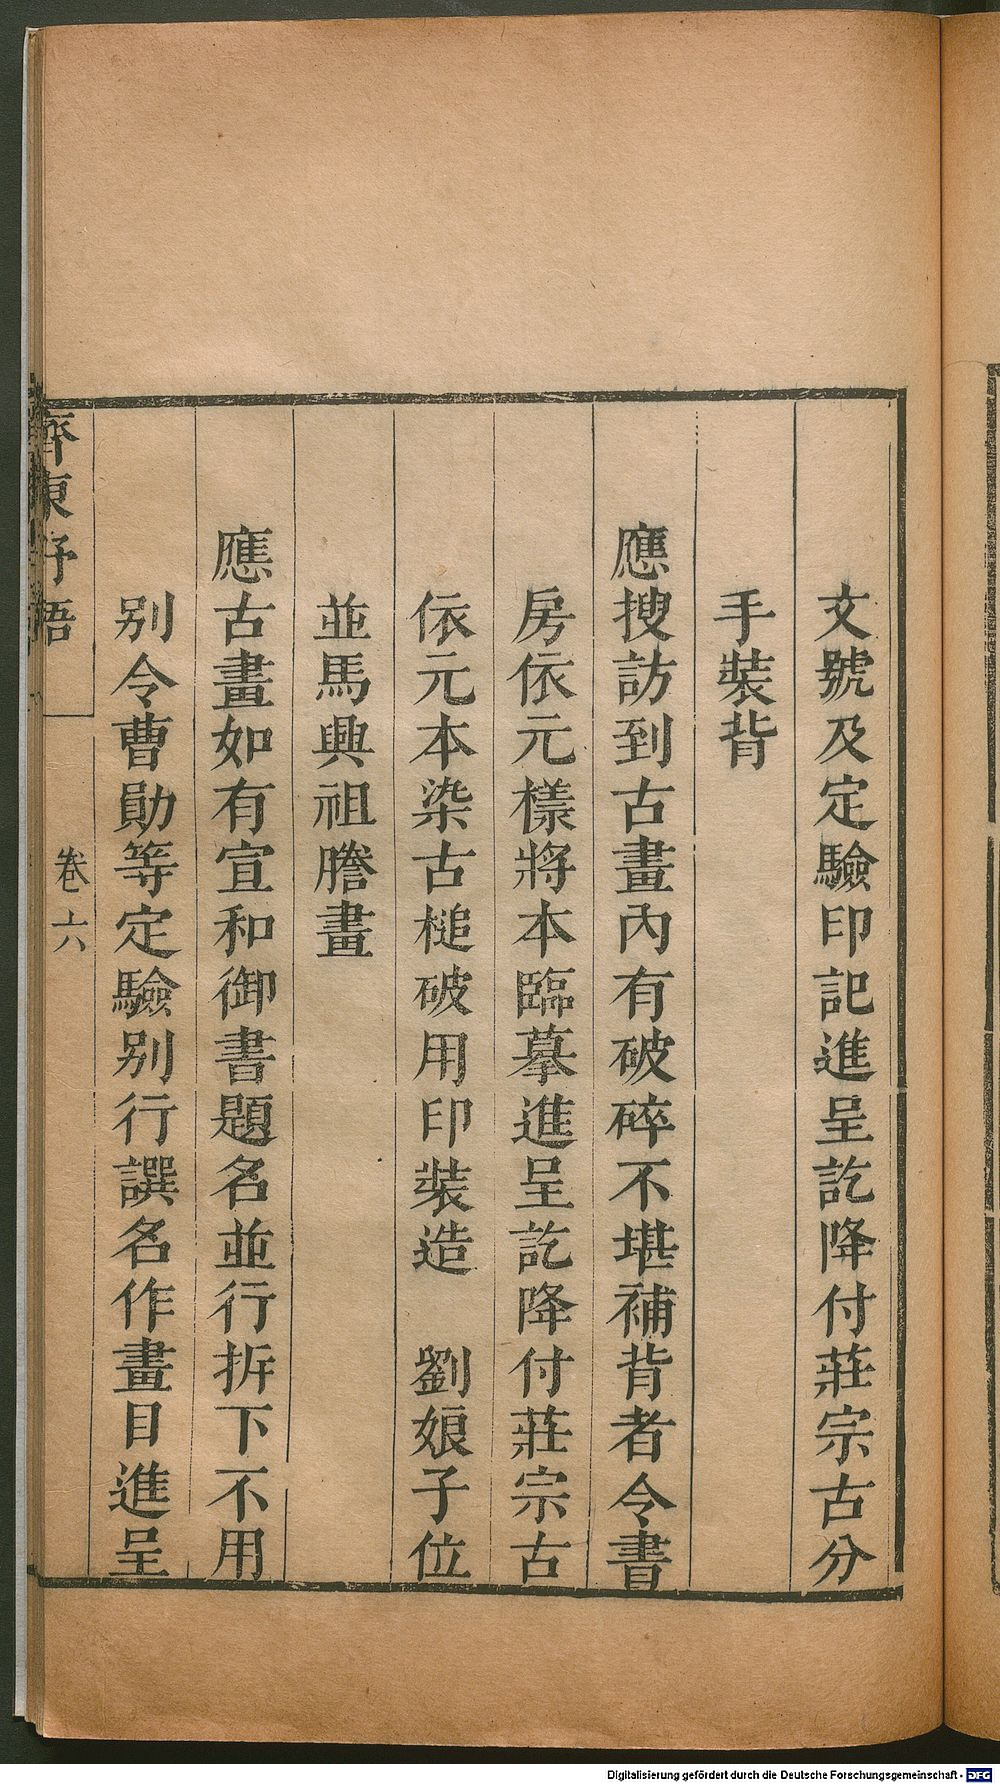 文號及定驗印記進呈訖降付莊宗古分
手裝背
應搜訪到古畫內有破碎不堪補背者令書
房依元樣將本臨摹進呈訖降付莊宗古
依元本染古槌破用印裝造　劉娘子位
並馬興祖謄畫
應古畫如有宣和御書題名並行拆下不用
別令曹勛等定驗別行譔名作畫目進呈
齊東野語
卷六
Digitalisierung gefördert durch die Deutsche Forschungsgemeinschaft - DFG